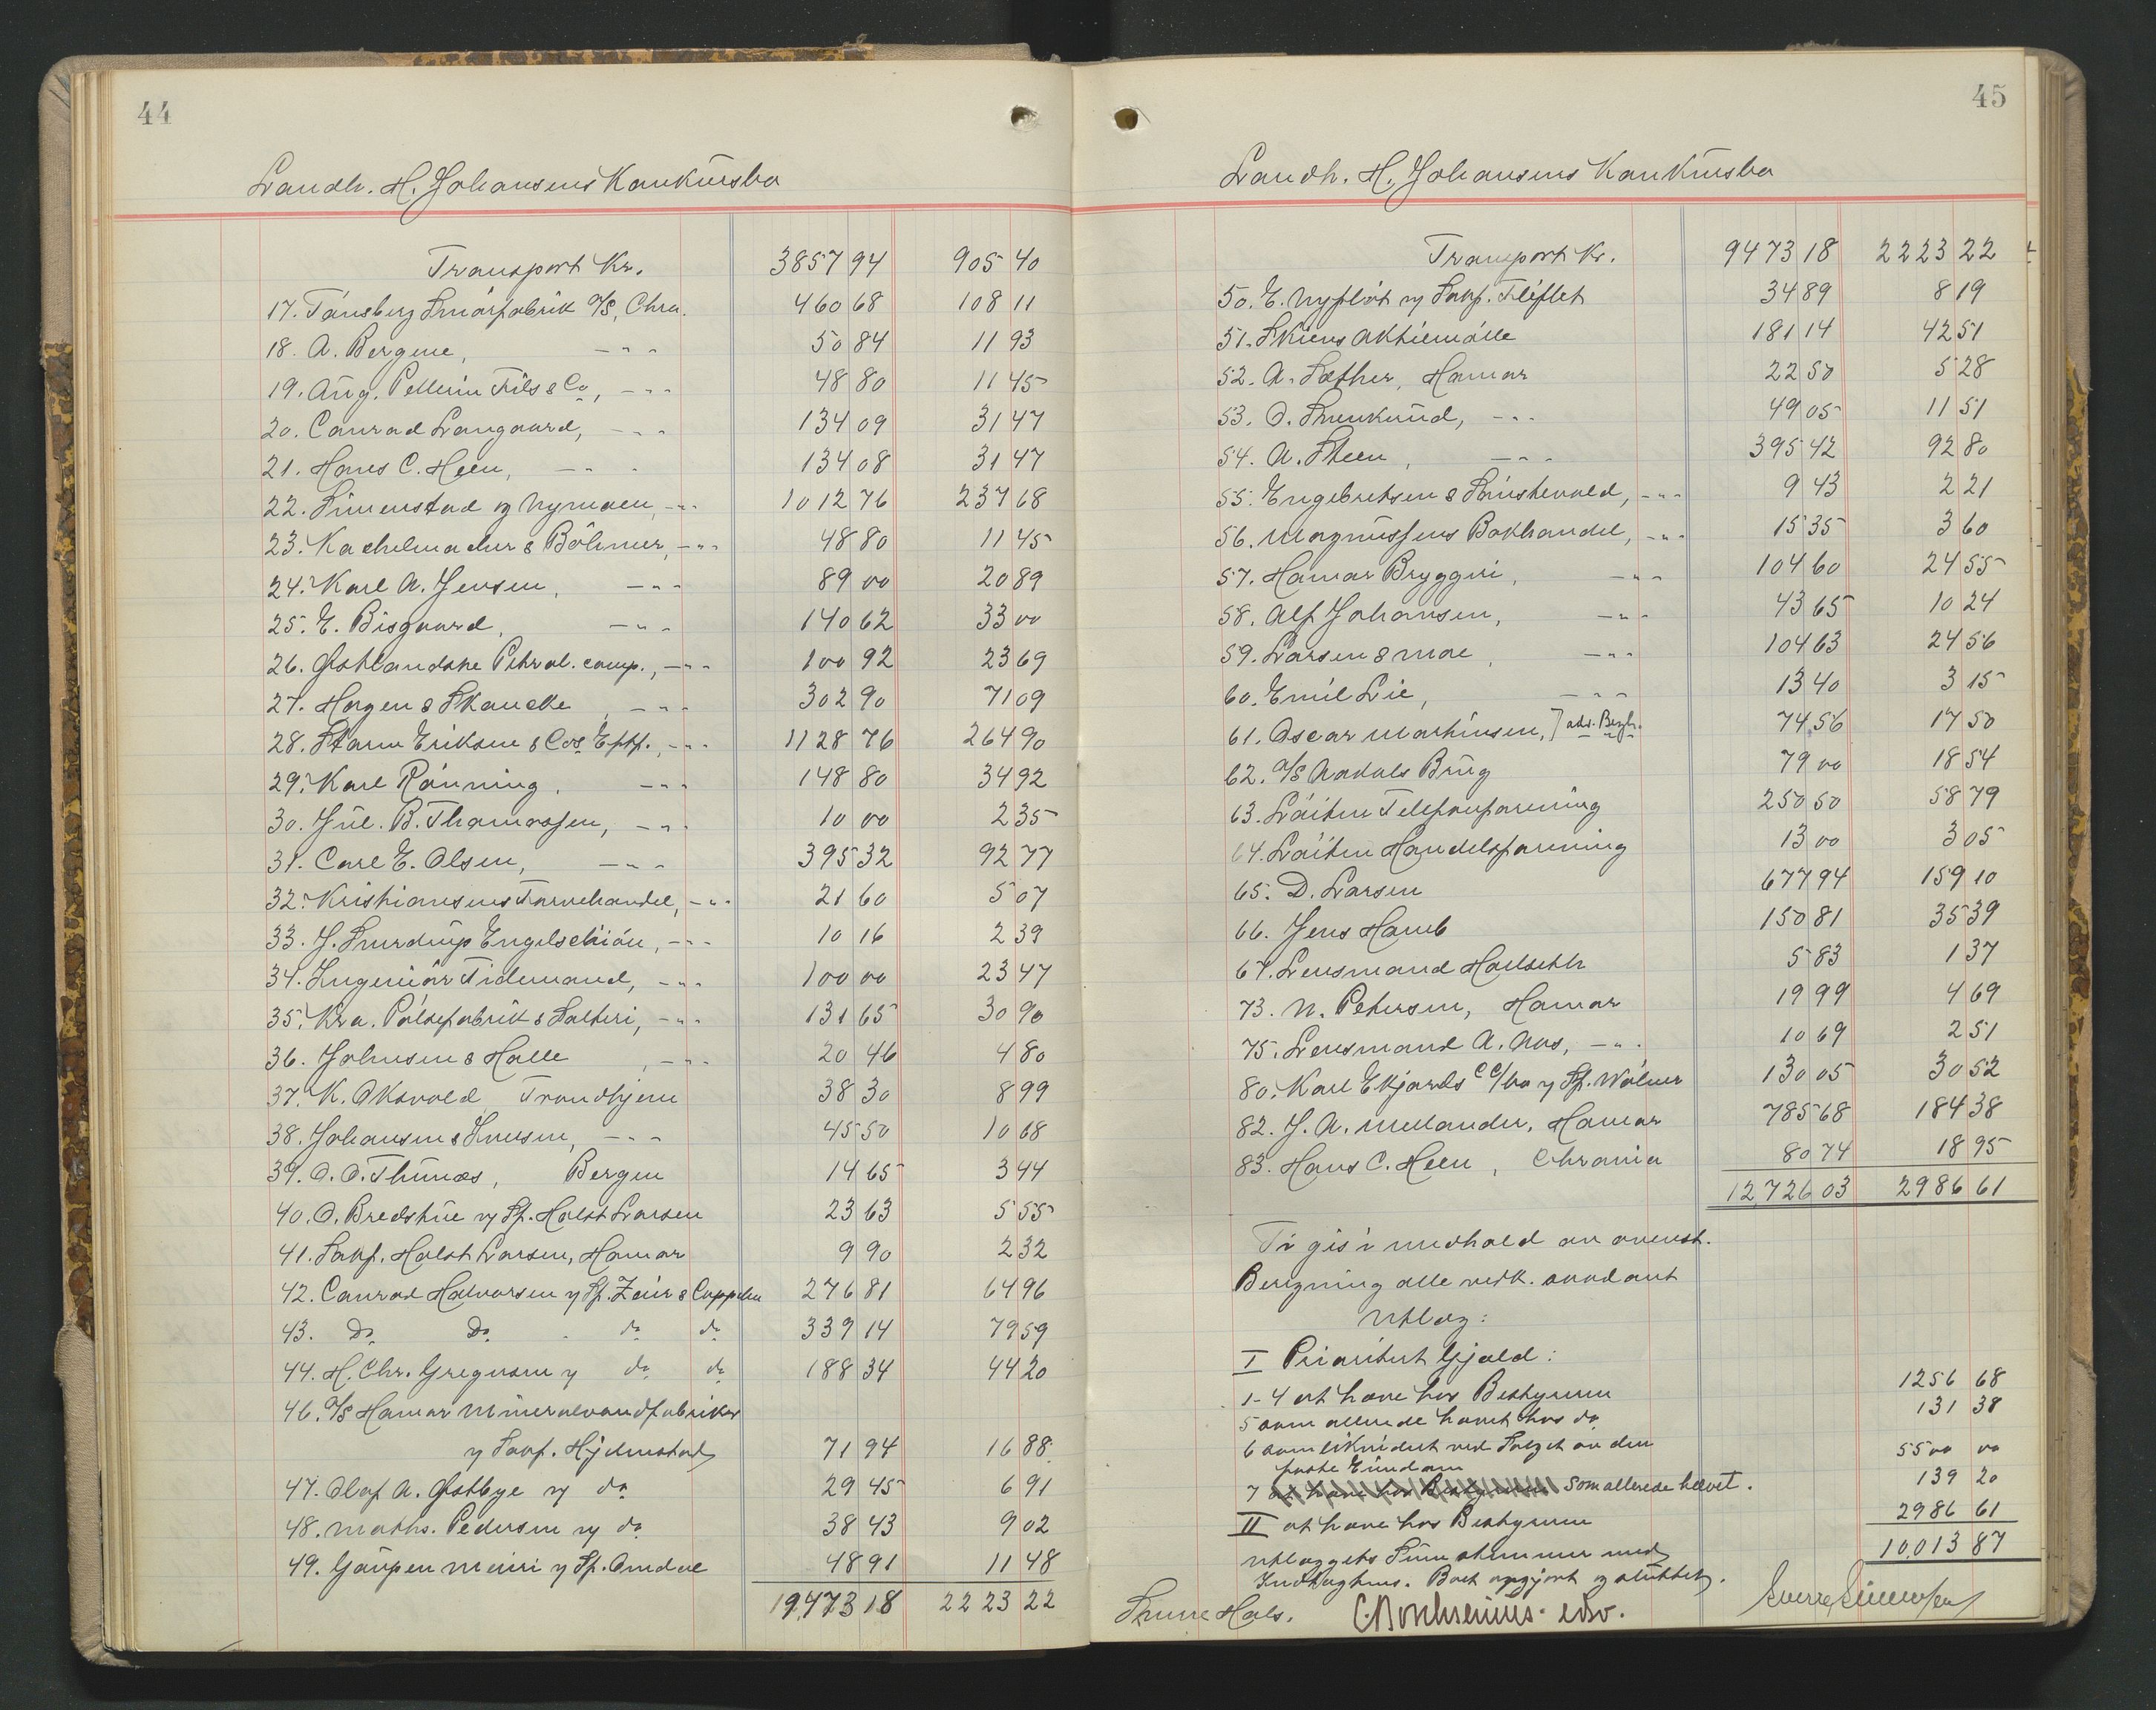 44
Landh. H. Johansens Konkursbo
Transport Kr. 3857 94 905 40
17. Tönsberg Smörfabrik A/S, Chra. 460 68 108 11
18. A. Bergene, -"- 50 84 11 93
19. Aug. Pellerin Fils & Co, -"- 48 80 11 45
20. Conrad Langaard, -"- 134 09 31 47
21. Hans C. Heen, -"- 134 08 31 47
22. Simenstad og Nymoen, -"- 1012 76 237 68
23. Kachelmacher & Böhmer, -"- 48 80 11 45
24. Karl A. Jensen, -"- 89 00 20 89
25. E. Bisgaard, -"- 140 62 33 00
26. Østlandske Petrol. comp., -"- 100 92 23 69
27. Hagen & Skancke, -"- 302 90 71 09
28. Storm Eriksen & Cos. Eftf., -"- 1128 76 264 90
29. Karl Rönning, -"- 148 80 34 92
30. Jul. B. Thomassen, -"- 10 00 2 35
31. Carl E. Olsen, -"- 395 32 92 77
32. Kristiansens Farvehandel, -"- 21 60 5 07
33. J. Engelschiön, -"- 10 16 2 39
34. Ingeniör Tidemand, -"- 100 00 23 47
35. Kra. Pölsefabrik & Salteri, -"- 131 65 30 90
36. Johnsen & Halle, -"- 20 46 4 80
37. K. Oksvold Trondhjem 38 30 8 99
38. Johansen & -"- 45 50 10 68
39. O. O. Thunæs, Bergen 14 65 3 44
40. O. Bredstue v/ Sf. Holst Larsen 23 63 5 55
41. Sakf. Holst Larsen, Hamar 9 90 2 32
42. Conrad Halvorsen v/ Sf. Zeier & Cappelen 276 81 64 96
43. Do Do do do 339 14 79 59
44. H. Chr. Gregersen v/ do do 188 34 44 20
46. A/S Hamar Mineralvandfabriker
v/ Sakf. Hjelmstad 71 94 16 88
47. Olaf A. Østbye v/ do 29 45 6 91
48. Maths. Pedersen v/ do 38 43 9 02
49. Gaupen Meieri v/ Sf. Omdal 48 91 11 48
19,473 18 2223 22
45
Landh. H. Johansens Konkursbo
Transport Kr. 9473 18 2223 22
50. E. Nyflöt v/ Sakf. Fliflet 34 89 8 19
51. Skiens Aktiemölle 181 14 42 51
52. A. Sæther, Hamar 22 50 5 28
53. O. Snekund, -"- 49 05 11 51
54. A. Steen, -"- 395 42 92 80
55. Engebretsen & -"- 9 43 2 21
56. Magnussens Bokhandel, -"- 15 35 3 60
57. Hamar Bryggeri, -"- 104 60 24 55
58. Alf Johansen, -"- 43 65 10 24
59. Larsen & Moe, -"- 104 63 24 56
60. Emil Lie, -"- 13 40 3 15
61. Oscar Martinsen, 74 56 17 50
62. A/S Aadals Brug 79 00 18 54
63. Löiten Telefonforening 250 50 58 79
64. Löiten Handelsforening 13 00 3 05
65. D. Larsen 677 94 159 10
66. Jens Homb 150 81 35 39
67. Lensmand Holseth 5 83 1 37
73. N. Petersen, Hamar 19 99 4 69
75. Lensmand A. Aas, -"- 10 69 2 51
80. Karl Ekjords C C/bo v/ Sf. Wölner 130 05 30 52
82. J. A. Melander, Hamar 785 68 184 38
83. Hans C. Heen, Chrania 80 74 18 95
12,726 03 2986 61
Ti gis i medhold av ovenst.
Beregning alle vedk. saadant
Utlæg:
I Prioritert Gjæld:
1-4 at hæve hos Bestyreren 1256 68
5 som allerede hævet hos do 131 38
6 som likvidert ved Salget av den
faste Eiendom 5500 00
7 at hæve hos Bestyreren som allerede hævet. 139 20
II at hæve hos Bestyreren 2986 61
Utlæggets Sum stemmer med 10,013 87
Indtægterne. Boet opgjort og sluttet.